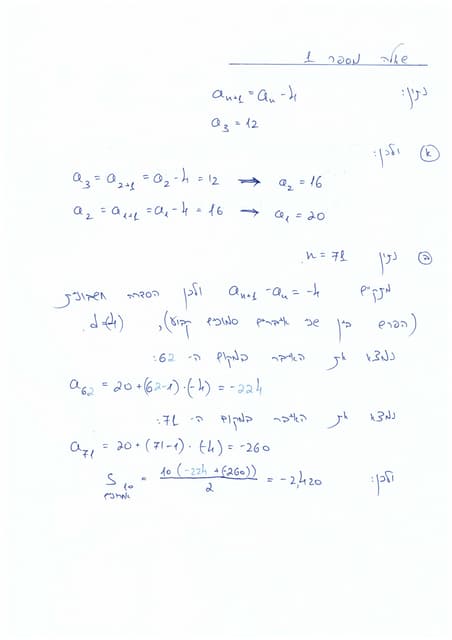 שאלה מספר 1
נתון: aₙ₊₁ = aₙ - 4
a₃ = 12
א ולכן:
a₃ = a₂₊₁ = a₂ - 4 = 12 → a₂ = 16
a₂ = a₁₊₁ = a₁ - 4 = 16 → a₁ = 20
ב נתון n = 71.
מתקיים aₙ₊₁ - aₙ = -4 ולכן הסדרה חשבונית
(הפרש בין שני איברים סמוכים קבוע), d=(-4).
נמצא את האיבר במקום ה- 62:
a₆₂ = 20 + (62-1)·(-4) = -224
נמצא את האיבר במקום ה- 71:
a₇₁ = 20 + (71-1)·(-4) = -260
ולכן: S₁₀ אחרונים = 10(-224 + (-260)) / 2 = -2,420